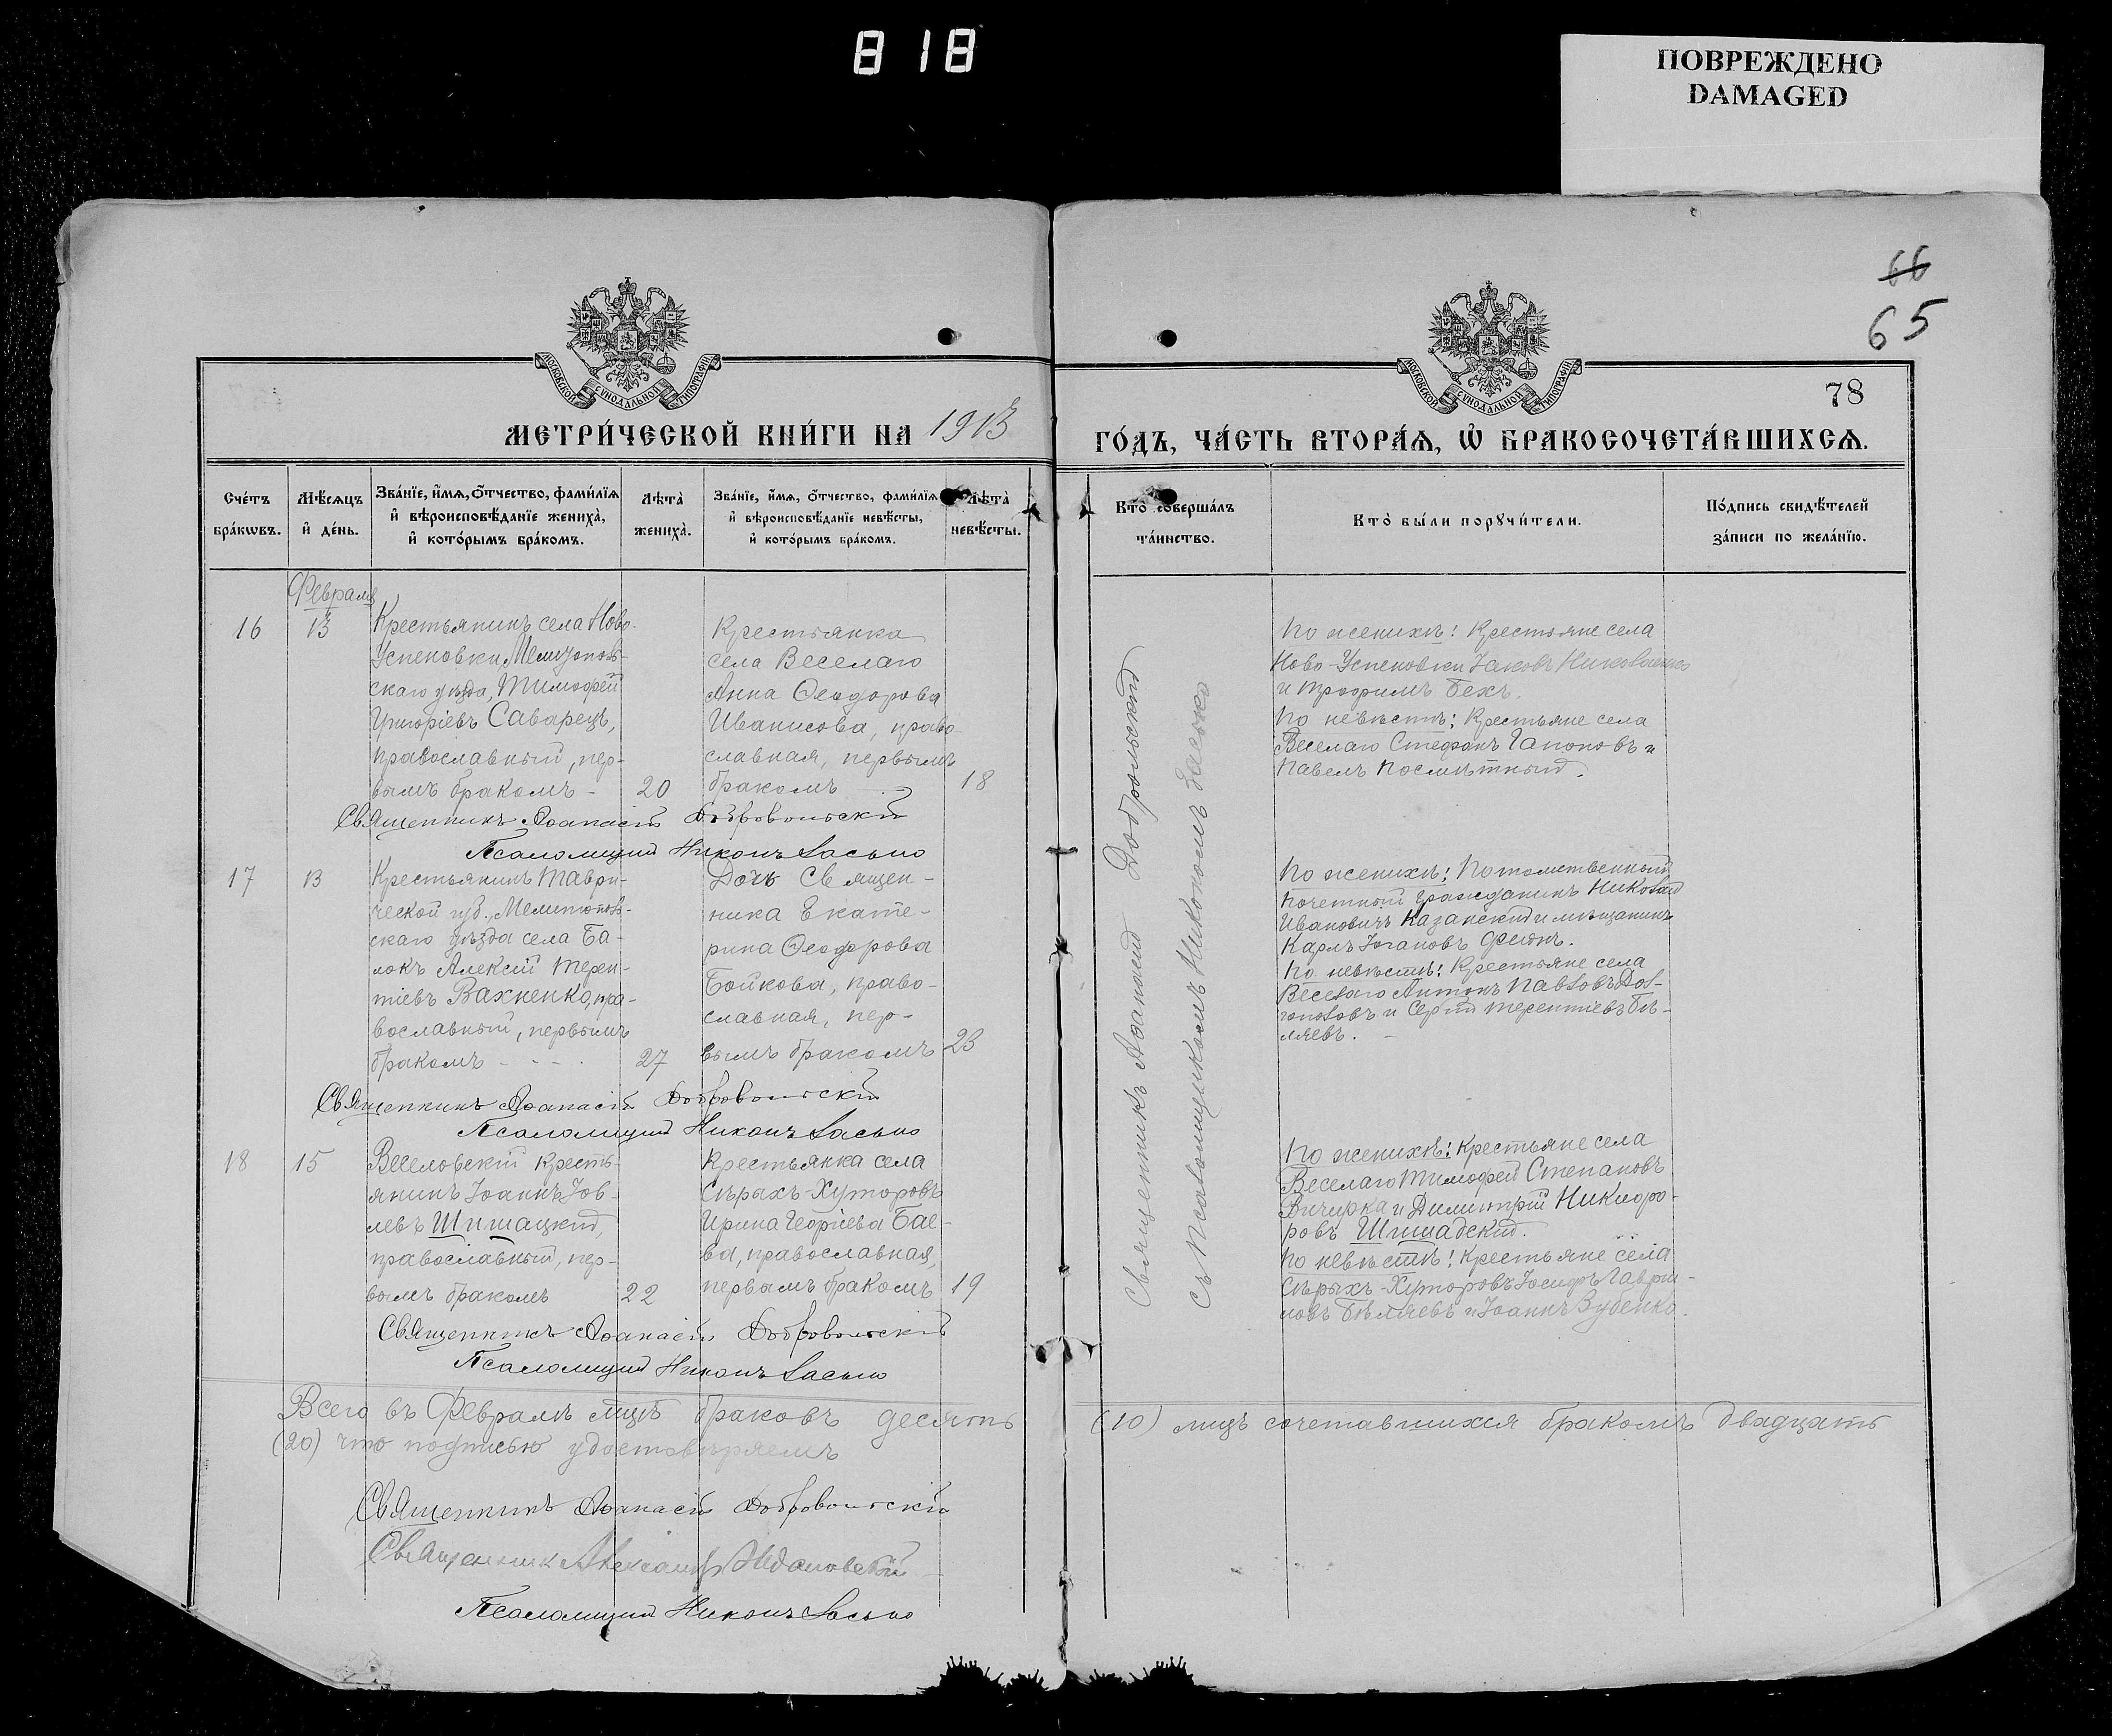 818
ПОВРЕЖДЕНО
DAMAGED
66
65
78
МОСКОВСКОЙ СѴНОДАЛЬНОЙ ТИПОГРАФІИ
МОСКОВСКОЙ СѴНОДАЛЬНОЙ ТИПОГРАФІИ
МЕТРИ́ЧЕСКОЙ КНИ́ГИ НА 1913
ГО́ДЪ, ЧА́СТЬ ВТОРА́Ѧ, Ѡ҆ БРАКОСОЧЕТА́ВШИХСѦ.
Сче́тъ бра́кѡвъ.
Мѣ́сѧцъ и҆ де́нь.
Зва́нїе, и҆́мѧ, ѻ҆́тчество, фами́лїѧ
и҆ вѣроисповѣ́данїе жениха̀,
и҆ кото́рымъ бра́комъ.
Лѣта̀ жениха̀.
Зва́нїе, и҆́мѧ, ѻ҆́тчество, фами́лїѧ
и҆ вѣроисповѣ́данїе невѣ́сты,
и҆ кото́рымъ бра́комъ.
Лѣта̀ невѣ́сты.
Кто̀ соверша́лъ
та́инство.
Кто̀ бы́ли порꙋчи́тели.
По́дпись свидѣ́телей
за́писи по жела́нїю.
Февраля
16
13
Крестьянинъ села Ново-
Успеновки, Мелитополь-
скаго уѣзда, Тимофей
Григоріевъ Саварецъ,
православный, пер-
вымъ бракомъ -
20
Крестьянка
села Веселаго
Анна Ѳеодорова
Иванисова, право-
славная, первымъ
бракомъ
18
По женихѣ: Крестьяне села
Ново-Успеновки Іаковъ
и Трофимъ Бехъ.
По невѣстѣ: Крестьяне села
Веселаго Стефанъ Гапоновъ и
Павелъ Посмѣтный.
Священникъ Аѳанасій Добровольскій
Псаломщикъ Никонъ Засько
17
13
Крестьянинъ Таври-
ческой губ., Мелитополь-
скаго уѣзда села Ба-
локъ Алексій Терен-
тіевъ Вахненко, пра-
вославный, первымъ
бракомъ - - - .
27
Дочь священ-
ника Екате-
рина Ѳеодорова
Бойкова, право-
славная, пер-
вымъ бракомъ
23
По женихѣ: Потомственный
Почетный Гражданинъ Николай
Ивановичъ Казанскій и мѣщанинъ
Карлъ Іогановъ
По невѣстѣ: Крестьяне села
Веселаго Антонъ Павловъ Дол-
гополовъ и Сергій Терентіевъ Бѣ-
ляевъ. -
Священникъ Аѳанасій Добровольскій
Псаломщикъ Никонъ Засько
18
15
Веселовскій кресть-
янинъ Іоаннъ Іов-
левъ Шишацкій,
православный, пер-
вымъ бракомъ
22
Крестьянка села
Сѣрыхъ-Хуторовъ
Ирина Георгіева Бае-
ва, православная,
первымъ бракомъ
19
По женихѣ: Крестьяне села
Веселаго Тимофей Степановъ
Вичирка и Димитрій Никифо-
ровъ Шишадскій.
По невѣстѣ: Крестьяне села
Сѣрыхъ-Хуторовъ Іосифъ Гаври-
ловъ Бѣляевъ и Іоаннъ Зубенко.
Священникъ Аѳанасій Добровольскій
Псаломщикъ Никонъ Засько
Священникъ Аѳанасій Добровольскій
съ Псаломщикомъ Никономъ Засько
Всего въ Февралѣ мцѣ браковъ десять (10) лицъ сочетавшихся бракомъ двадцать
(20) что подписью удостовѣряемъ
Священникъ Аѳанасій Добровольскій
Священникъ Александръ
Псаломщикъ Никонъ Засько